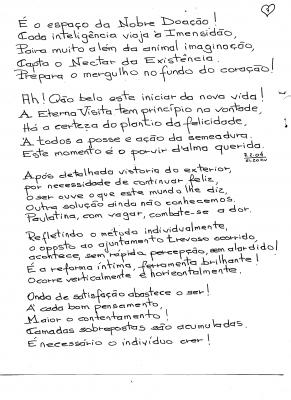 É o espaço da Nobre Doação!
Cada inteligência viaja à Imensidão,
Paira muito além da animal imaginação,
Capta o Nectar da Existência.
Prepara o mergulho no fundo do coração!
Ah! Quão belo este iniciar da nova vida!
A Eterna Visita tem princípio na vontade,
Há a certeza do plantio da felicidade,
A todos a posse e ação da semeadura.
Este momento é o porvir d'alma querida.
Após detalhada vistoria do exterior,
por necessidade de continuar feliz,
o ser ouve o que este mundo lhe diz,
Outra solução ainda não conhecemos.
Paulatina, com vagar, combate-se a dor.
Refletindo o método individualmente,
o oposto ao ajuntamento trevoso ocorrido,
acontece, sem rápida percepção, sem alarido!
É a reforma íntima, ferramenta brilhante!
Ocorre verticalmente e horizontalmente.
Onda de satisfação abastece o ser!
A cada bom pensamento,
Maior o contentamento!
Camadas sobrepostas são acumuladas.
É necessário o indivíduo crer!